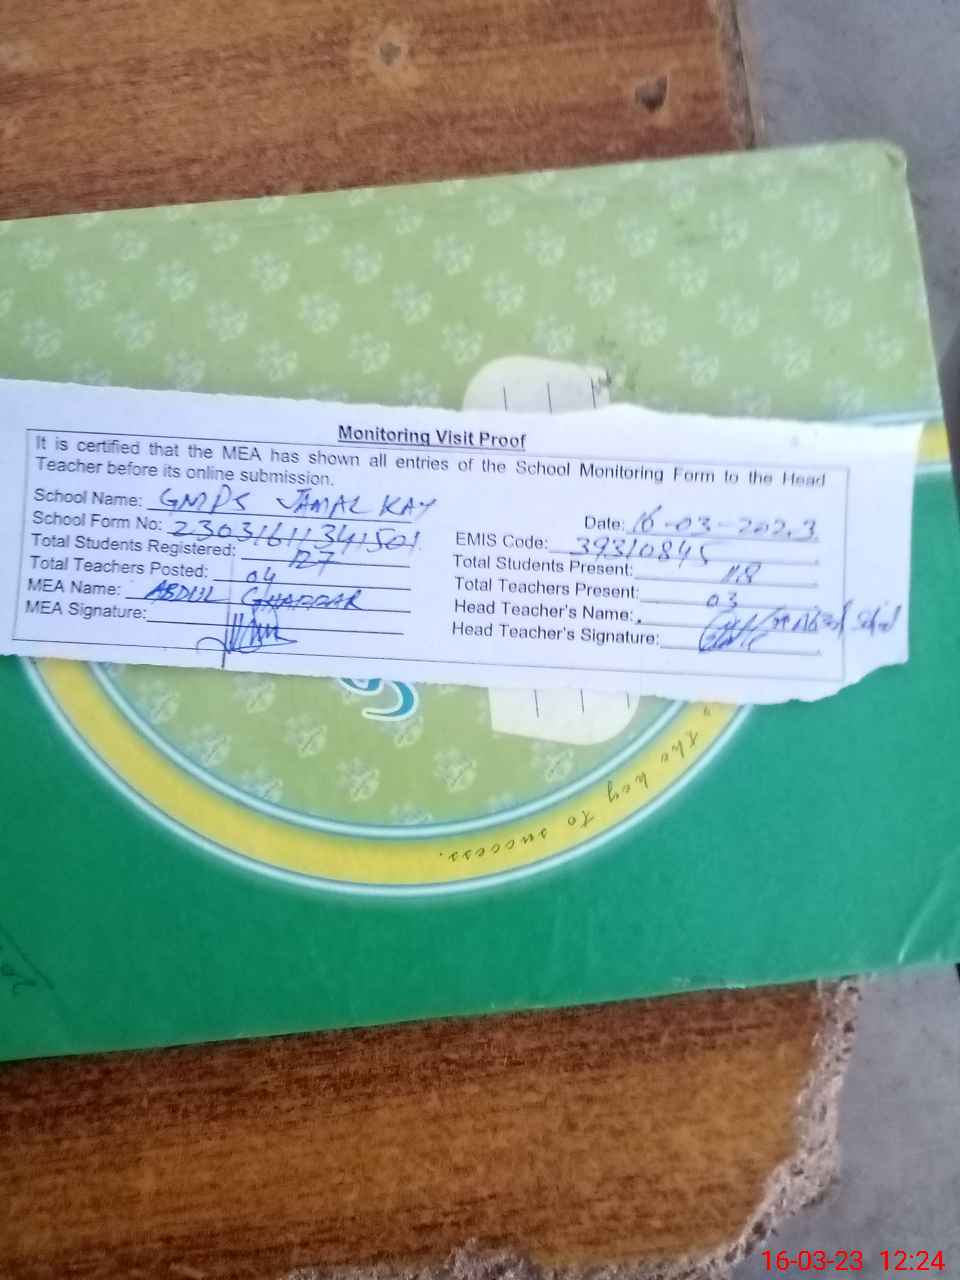 Monitoring Visit Proof
It is certified that the MEA has shown all entries of the School Monitoring Form to the Head
Teacher before its online submission.
School Name: GMPS JAMAL KAY
Date: 16-03-2023
School Form No: 23031611341501
EMIS Code: 39310845
Total Students Registered: 127
Total Students Present: 118
Total Teachers Posted: 04
Total Teachers Present: 03
MEA Name: ABDUL GHAFFAR
Head Teacher's Name:
MEA Signature:
Head Teacher's Signature:
the key to success.
16-03-23 12:24